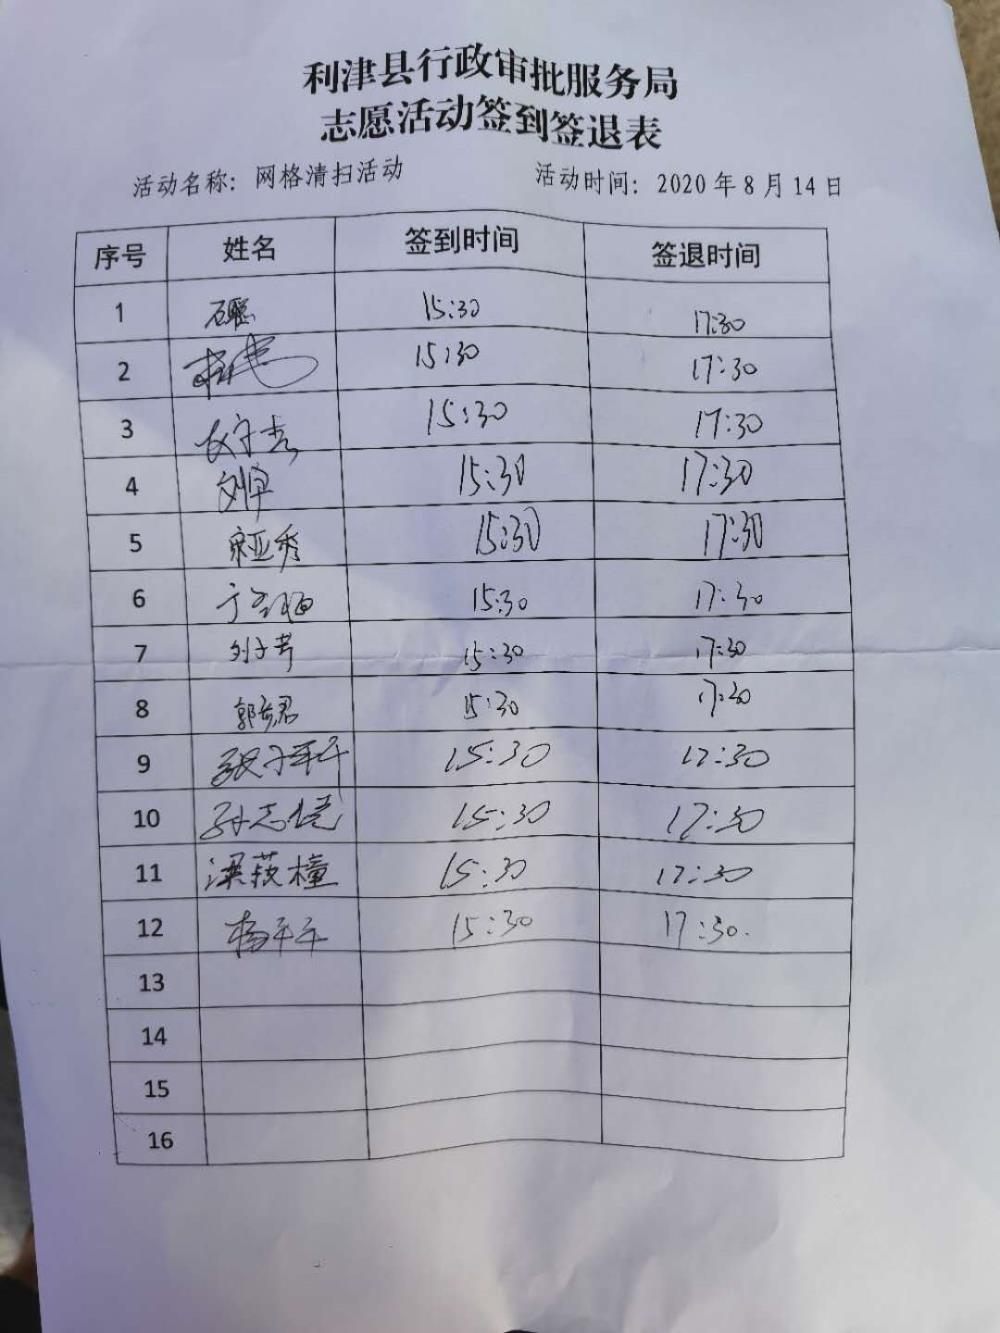 利津县行政审批服务局
志愿活动签到签退表
活动名称：网格清扫活动 活动时间：2020年8月14日
序号 姓名 签到时间 签退时间
1 石聪 15:30 17:30
2 15:30 17:30
3 15:30 17:30
4 15:30 17:30
5 宋亚秀 15:30 17:30
6 15:30 17:30
7 刘子芳 15:30 17:30
8 郭彦君 15:30 17:30
9 15:30 17:30
10 15:30 17:30
11 梁筱橦 15:30 17:30
12 杨平平 15:30 17:30.
13
14
15
16